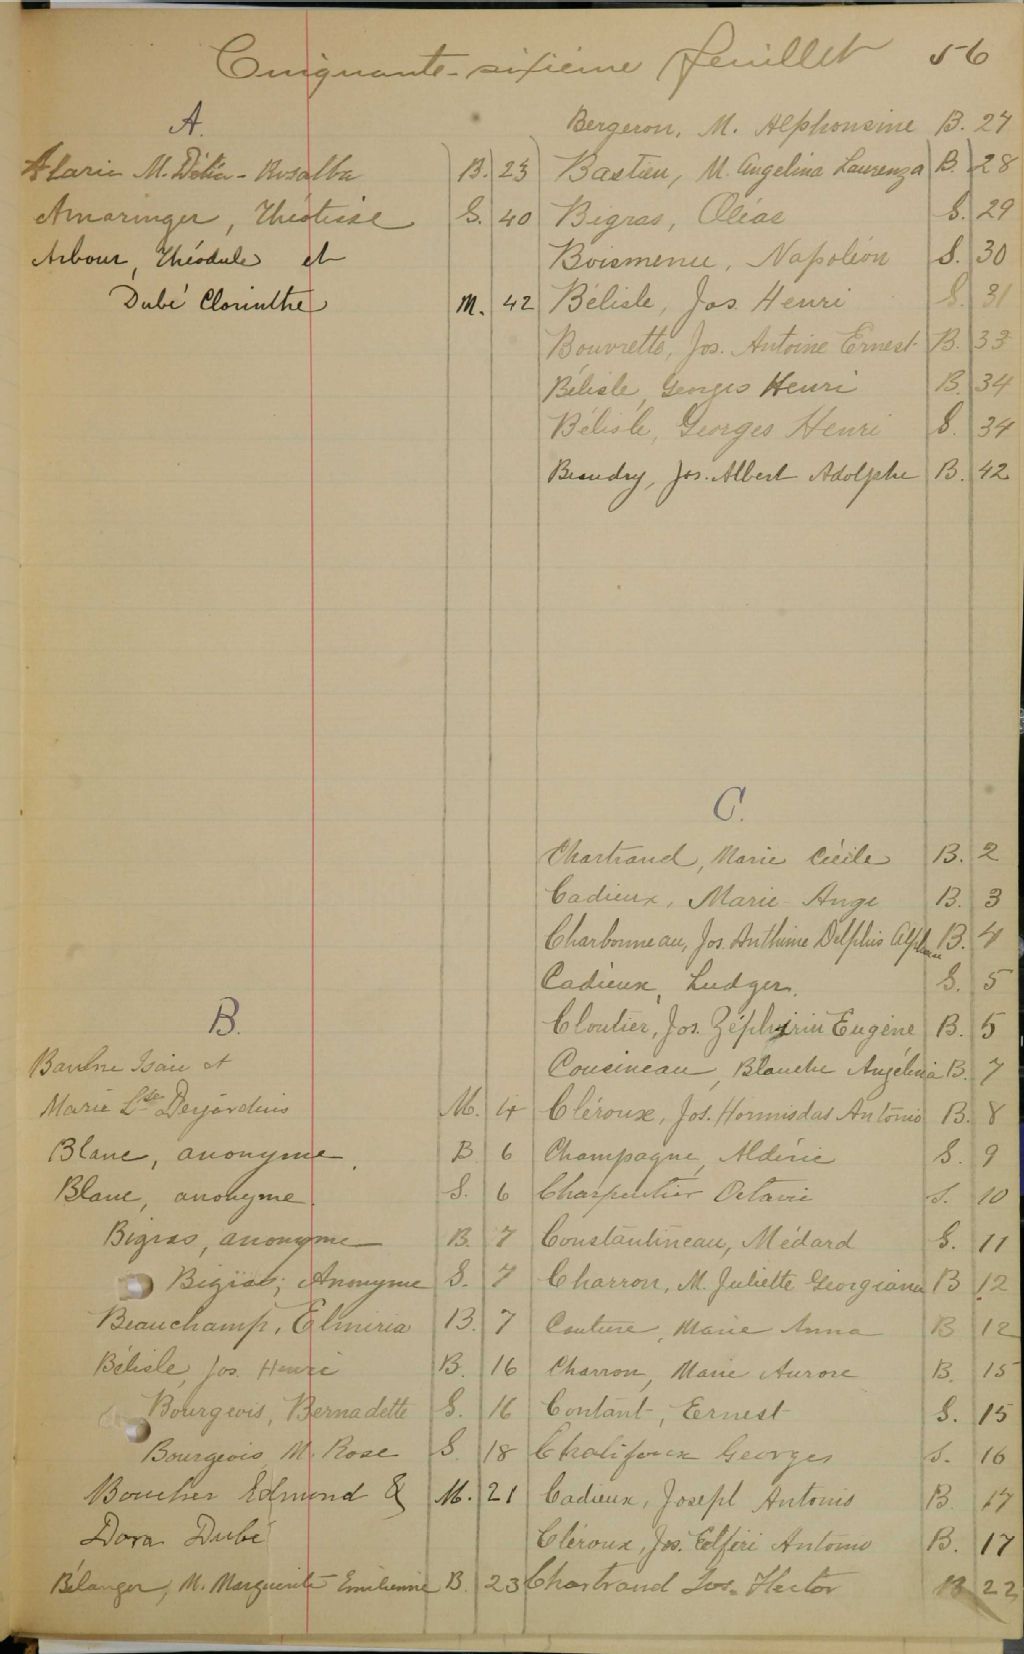 Cinquante-sixième feuillet 56
A.
Alarie M. Délia-Rosalba B. 23
Amaringer, Théotisse S. 40
Arbour, Théodule et
Dubé Clorinthe M. 42
B.
Baulne Isaie et
Marie Lse Desjardins M. 4
Blanc, anonyme. B 6
Blanc, anonyme. S. 6
Bigras, anonyme B. 7
Bigras, Anonyme S. 7
Beauchamp, Elmiria B. 7
Bélisle, Jos. Henri B. 16
Bourgeois, Bernadette S. 16
Bourgeois M. Rose S. 18
Boucher Edmond & M. 21
Dora Dubé
Bélanger, M. Marguerite Emilienne B. 23
Bergeron, M. Alphonsine B. 27
Bastien, M. Angelina Laurenza B. 28
Bigras, Oléas S. 29
Boismenu, Napoléon S. 30
Bélisle, Jos. Henri S. 31
Bouvrette, Jos. Antoine Ernest B. 33
Bélisle, Georges Henri B. 34
Bélisle, Georges Henri S. 34
Beaudry, Jos. Albert Adolphe B. 42
C.
Chartrand, Marie Cécile B. 2
Cadieux, Marie-Ange B. 3
Charbonneau, Jos. Anthime Delphis B. 4
Cadieux, Ludger. S. 5
Cloutier, Jos. Zéphirin Eugène B. 5
Cousineau, Blanche Angélina B. 7
Cléroux, Jos. Hormisdas Antonio B. 8
Champagne, Aldéric S. 9
Charpentier Octavie S. 10
Constantineau, Médard S. 11
Charron, M. Juliette Georgiana B 12
Couture, Marie Anna B 12
Charron, Marie Aurore B. 15
Contant, Ernest S. 15
Chalifoux Georges S. 16
Cadieux, Joseph Antonio B. 17
Cléroux, Jos. Antonio B. 17
Chartrand Jos. Hector B 22